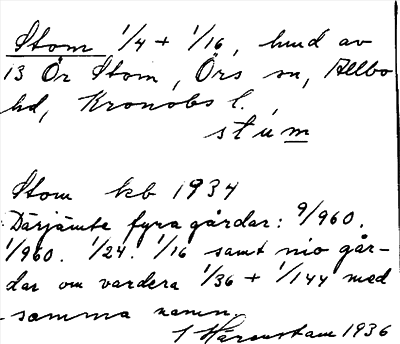 Stom 1/4 + 1/16, hmd av
13 Ör Stom, Örs sn, Allbo
hd, Kronobs l.
stúm
Stom kb 1934
Därjämte fyra gårdar: 9/960.
1/960. 1/24. 1/16 samt nio går-
dar om vardera 1/36 + 1/144 med
samma namn.
I Härenstam 1936